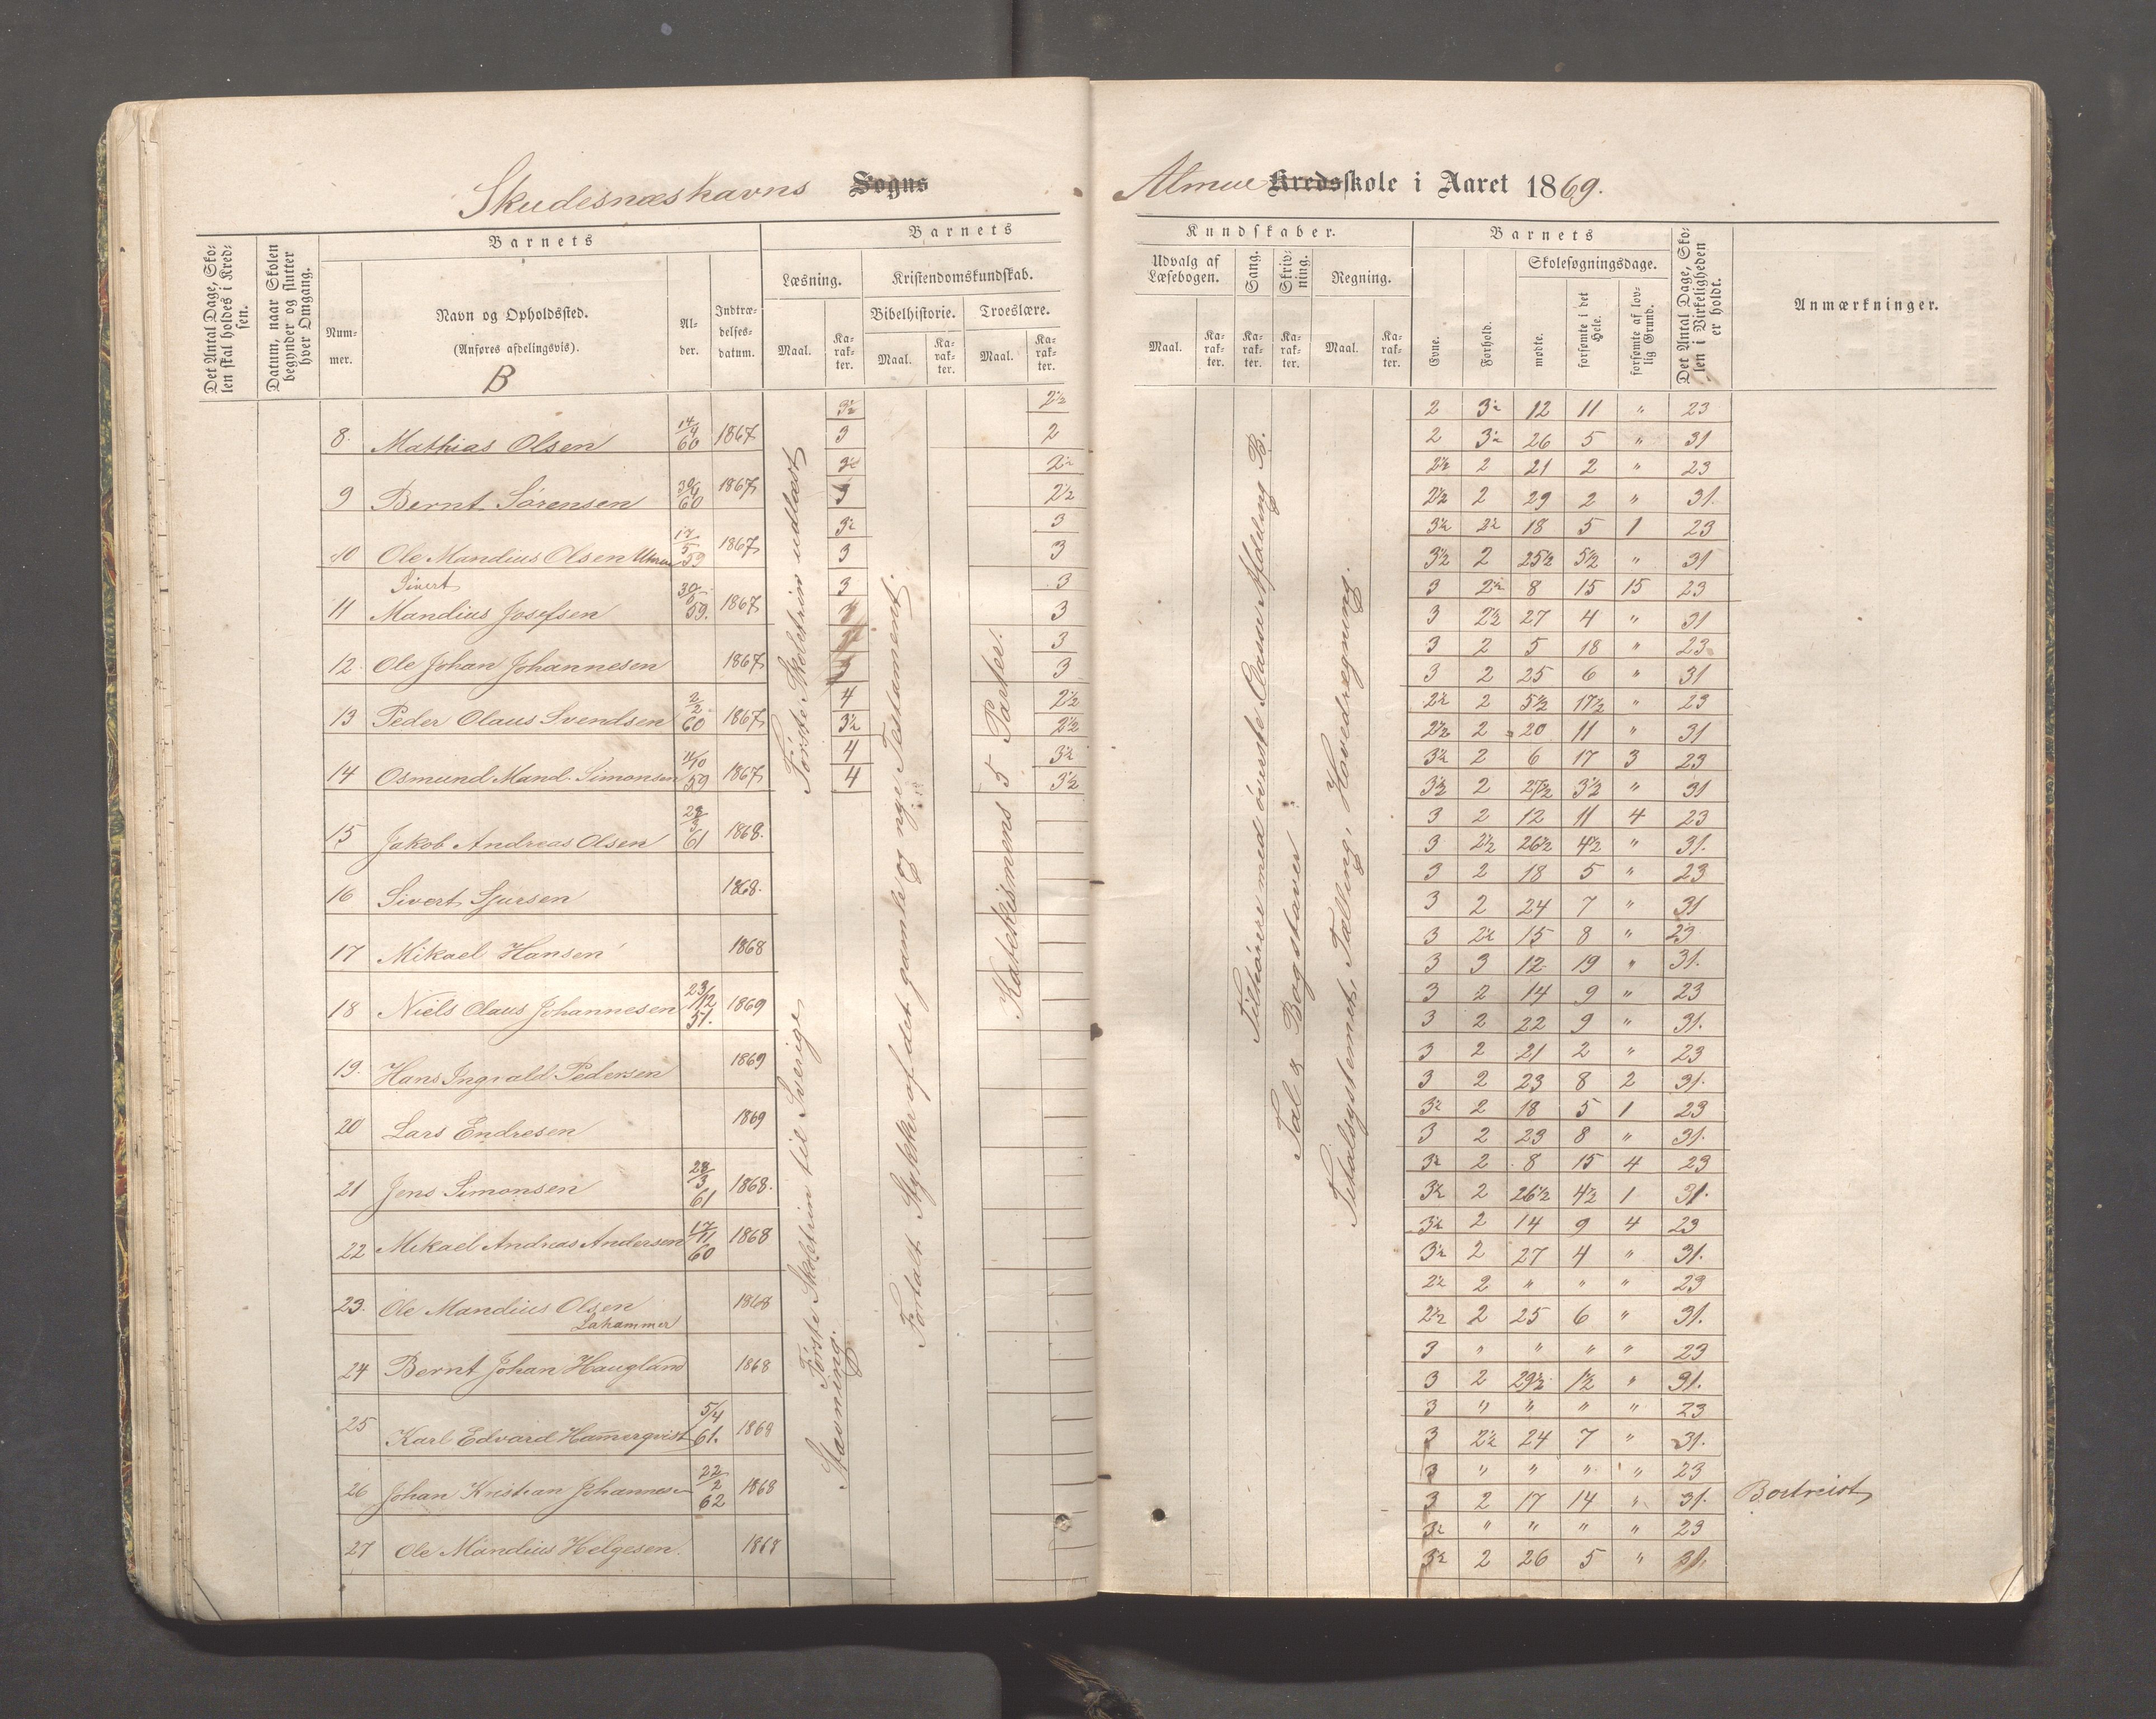 Skudesnæshavns Sogns
Almue Kredsskole i Aaret 1869.
Det Antal Dage, Skolen skal holdes i Kredsen.
Datum, naar Skolen begynder og slutter hver Omgang.
Barnets
Nummer.
Navn og Opholdssted.
(Anføres afdelingsvis).
B
Alder.
Indtrædelsesdatum.
Barnets
Læsning.
Maal.
Karakter.
Kristendomskundskab.
Bibelhistorie.
Maal.
Karakter.
Troeslære.
Maal.
Karakter.
Kundskaber.
Udvalg af Læsebogen.
Maal.
Karakter.
Sang.
Karakter.
Skrivning.
Karakter.
Regning.
Maal.
Karakter.
Barnets
Evne.
Forhold.
Skolesøgningsdage.
mødte.
forsømte i det Hele.
forsømte af lovlig Grund.
Det Antal Dage, Skolen i Virkeligheden er holdt.
Anmærkninger.
3½ 2½ 2 3½ 12 11 " 23
8. Mathias Olsen 14/4 60 1867 3 2 2 3½ 26 5 " 31
3½ 2½ 2½ 2 21 2 " 23
9 Bernt Sørensen 30/4 60 1867 3 2½ 2½ 2 29 2 " 31.
3½ 3 3½ 2½ 18 5 1 23
10 Ole Mandius Olsen 17/5 59 1867 3 3 3½ 2 25½ 5½ " 31
Sivert 3 3 3 2½ 8 15 15 23
11 Mandius Josefsen 30/5 59. 1867 3 3 3 2½ 27 4 " 31
3 3 2 5 18 " 23
12. Ole Johan Johannesen 1867 3 3 3 2 25 6 " 31
4 2½ 2½ 2 5½ 17½ " 23
13 Peder Olaus Svendsen 2/2 60 1867 3½ 2½ 2½ 2 20 11 " 31
4 3½ 3½ 2 6 17 3 23
14 Osmund Mand. Simonsen 4/10 59 1867 4 3½ 3½ 2 27½ 3½ " 31
3 2 12 11 4 23
15 Jakob Andreas Olsen 61 1868. 3 2½ 26½ 4½ " 31.
3 2 18 5 " 23
16 Sivert Sjursen 1868. 3 2 24 7 " 31
3 2½ 15 8 " 23
17 Mikael Hansen 1868 3 3 12 19 " 31.
3 2 14 9 " 23
18 Niels Olaus Johannesen 23/12 1869 3 2 22 9 " 31.
3 2 21 2 " 23
19. Hans Ingvald Pedersen 1869 3 2 23 8 2 31.
3½ 2 18 5 1 23
20 Lars Endresen 1869 3 2 23 8 " 31.
3½ 2 8 15 4 23
21 Jens Simonsen 28/3 61 1868. 3½ 2 26½ 4½ 1 31.
3½ 2 14 9 4 23
22 Mikael Andreas Andersen 17/11 60 1868 3½ 2 27 4 " 31.
2½ 2 " " " 23
23. Ole Mandius Olsen 1868 2½ 2 25 6 " 31.
Lahammer
3 " " " " 23
24 Bernt Johan Haugland 1868 3 2 29½ 1½ " 31.
3 " " " " 23
25 Karl Edvard Hamerqvist 5/4 61. 1868 3 2½ 24 7 " 31.
3 " " " " 23
26 Johan Kristian Johannesen 22/2 62 1868 3 2 17 14 " 31. Bortreist
3½ " " " " 23
27 Ole Mandius Helgesen. 1868 3½ 2 26 5 " 31.
Første Skoletrin udlæst
Første Skoletrin til Sverige
Stavning.
Fortalt Stykker af det gamle og nye Testamente.
Katekismens 5 Parter.
Tilhører med øverste Classe Afdeling B.
Tal & Bogstaver
Titalsystemet, Tælling, Hovedregning.